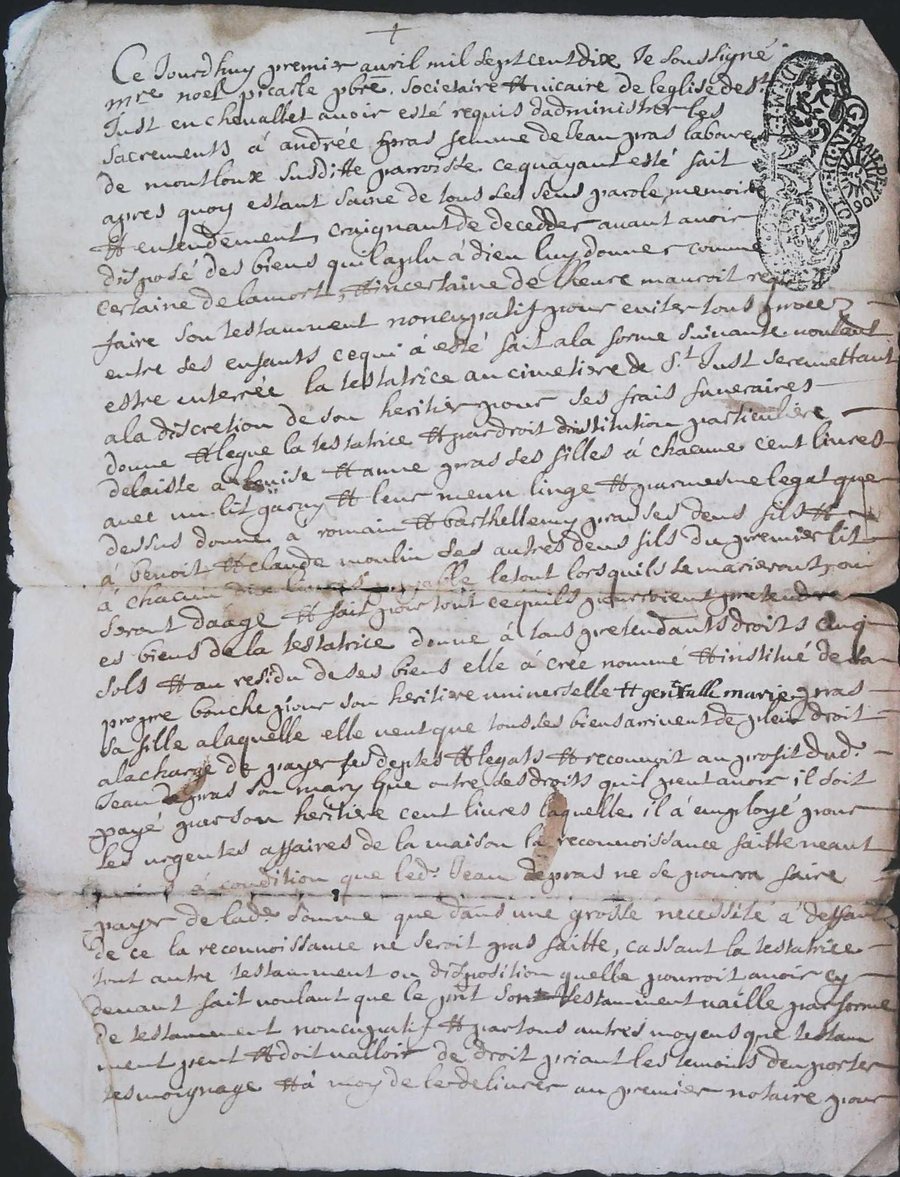 Ce Jourdhuy premier avril mil sept cent dix Je soussigné
mre noel picarle pbre, sociétaire et vicaire de leglise de st
Just en chevallet avoir esté requis dadministrer les
sacrements á andrée gras femme de Jean gras laboureur
de montloux susditte parroisse ce quayant esté fait
apres quoy estant saine de tous ses sens parole, memoire
et entendement, craignant de decedder avant avoir
disposé des biens quil a plu á dieu luy donner comme
certaine de la mort, et incertaine de lheure mauroit requis
faire son testamment noncupatif pour eviter tous procez
entre ses enfants ce qui á esté fait a la forme suivante voulant
estre enterrée la testatrice au cimetiere de St Just se remettant
a la discretion de son heritier pour ses frais funeraires
donne et legue la testatrice et par droit dinstitution particuliere
delaisse a Louise et anne gras ses filles á chacune cent livres
avec un lit garny et leur menu linge et par mesme legat que
dessus donne a romain et barthellemy gras ses deux fils et
á benoit et claude moulin ses autres deux fils du premier lit
á chacun dix livres payable le tout lorsquils se marieront, ou
seront daage et fait pour tout ce quils pourroient pretendre
es biens de la testatrice donne á tous pretendants droits cinq
sols et au residu de ses biens elle á creé nommé et institué de sa
propre bouche pour son heritiere universelle et generalle marie gras
sa fille a laquelle elle veut que tous ses biens arrivent de plein droit
a la charge de payer ses deptes et legats et reconnoit au profit dud.
Jean gras son mary que outre les droits quil peut avoir il soit
payé par son heritiere cent livres laquelle il á employé pour
les urgentes affaires de la maison la reconnoissance faitte neant
moins á condition que led. Jean gras ne se pourra faire
payer de lade somme que dans une grosse necessité á deffaut
de ce la reconnoissance ne seroit pas faitte, cassant la testatrice
tout autre testamment ou disposition quelle pourroit avoir cy
devant fait voulant que le pnt son testamment vaille par forme
de testamment noncupatif et par tous autres moyens que testam
ment peut et doit valloir de droit priant les temoins den porter
tesmoignage et á moy de le delivrer au premier notaire pour
GEN. DE LION